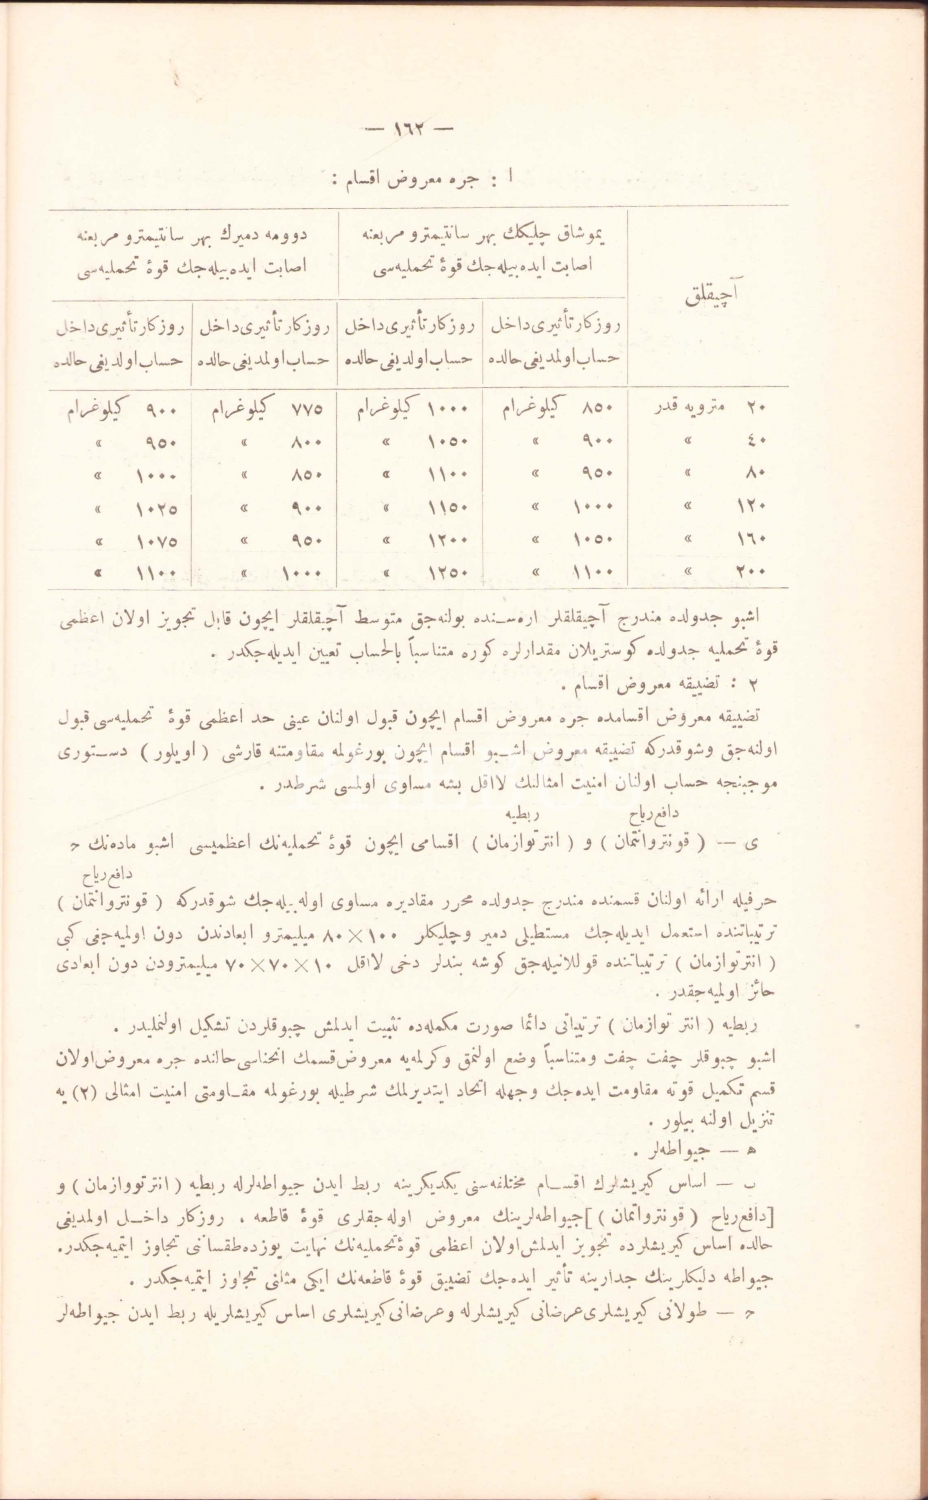 — ١٦٢ —
١ : جره معروض اقسام :
آچیقلق
یموشاق چلیکك بهر سانتیمترو مربعنه
اصابت ایده‌بیله‌جك قوهٔ تحملیه‌سی
دوومه دمیرك بهر سانتیمترو مربعنه
اصابت ایده‌بیله‌جك قوهٔ تحملیه‌سی
روزکار تأثیری داخل
حساب اولمدیغی حالده
روزکار تأثیری داخل
حساب اولدیغی حالده
روزکار تأثیری داخل
حساب اولمدیغی حالده
روزکار تأثیری داخل
حساب اولدیغی حالده
٢٠ مترویه قدر ٨٥٠ کیلوغرام ١٠٠٠ کیلوغرام ٧٧٥ کیلوغرام ٩٠٠ کیلوغرام
٤٠ » ٩٠٠ » ١٠٥٠ » ٨٠٠ » ٩٥٠ »
٨٠ » ٩٥٠ » ١١٠٠ » ٨٥٠ » ١٠٠٠ »
١٢٠ » ١٠٠٠ » ١١٥٠ » ٩٠٠ » ١٠٢٥ »
١٦٠ » ١٠٥٠ » ١٢٠٠ » ٩٥٠ » ١٠٧٥ »
٢٠٠ » ١١٠٠ » ١٢٥٠ » ١٠٠٠ » ١١٠٠ »
اشبو جدولده مندرج آچیقلقلر اره‌سنده بولنه‌جق متوسط آچیقلقلر ایچون قابل تجویز اولان اعظمی
قوهٔ تحملیه جدولده کوستریلان مقدارلره کوره متناسباً بالحساب تعیین ایدیله‌جکدر .
٢ : تضییقه معروض اقسام .
تضییقه معروض اقسامده جره معروض اقسام ایچون قبول اولنان عینی حد اعظمی قوهٔ تحملیه‌سی قبول
اولنه‌جق وشوقدرکه تضییقه معروض اشبو اقسام ایچون بورغولمه مقاومتنه قارشی ( اویلور ) دستوری
موجبنجه حساب اولنان امنیت امثالنك لااقل بشه مساوی اولمسی شرطدر .
دافع ریاح ربطیه
ی — ( قونتروانتمان ) و ( انترتوازمان ) اقسامی ایچون قوهٔ تحملیه‌نك اعظمیسی اشبو ماده‌نك ﺣ
دافع ریاح
حرفیله ارائه اولنان قسمنده مندرج جدولده محرر مقادیره مساوی اوله‌بیله‌جك شوقدرکه ( قونتروانتمان )
ترتیباتنده استعمال ایدیله‌جك مستطیلی دمیر وچلیکلر ١٠٠×٨٠ میلیمترو ابعادندن دون اولمیه‌جغی کبی
( انترتوازمان ) ترتیباتنده قوللانیله‌جق کوشه بندلر دخی لااقل ١٠×٧٠×٧٠ میلیمترودن دون ابعادی
حائز اولمیه‌جقدر .
ربطیه ( انتر توازمان ) ترتیباتی دائما صورت مکمله‌ده تثبیت ایدلمش چبوقلردن تشکیل اولنملیدر .
اشبو چبوقلر چفت چفت ومتناسباً وضع اولنمق وکرلمه‌یه معروض قسمك انحناسی حالنده جره معروض اولان
قسم تکمیل قوته مقاومت ایده‌جك وجهله اتحاد ایتدیرلمك شرطیله بورغولمه مقاومتی امنیت امثالی (٢) یه
تنزیل اولنه بیلور .
ﻫ — جیواطه‌لر .
ب — اساس کیریشلرك اقسام مختلفه‌سنی یکدیکرینه ربط ایدن جیواطه‌لرله ربطیه ( انترتووازمان ) و
[دافع ریاح ( قونترواتمان )] جیواطه‌لرینك معروض اوله‌جقلری قوهٔ قاطعه ، روزکار داخل اولمدیغی
حالده اساس کیریشلرده تجویز ایدلمش اولان اعظمی قوهٔ تحملیه‌نك نهایت یوزده طقساننی تجاوز ایتمیه‌جکدر.
جیواطه دلیکلرینك جدارینه تأثیر ایده‌جك تضییق قوهٔ قاطعه‌نك ایکی مثلنی تجاوز ایتمیه‌جکدر .
ﺣ — طولانی کیریشلری عرضانی کیریشلرله وعرضانی کیریشلری اساس کیریشلریله ربط ایدن جیواطه‌لر